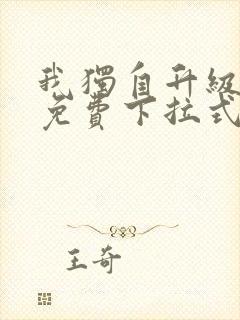 我獨自升級
免費下拉式
王奇